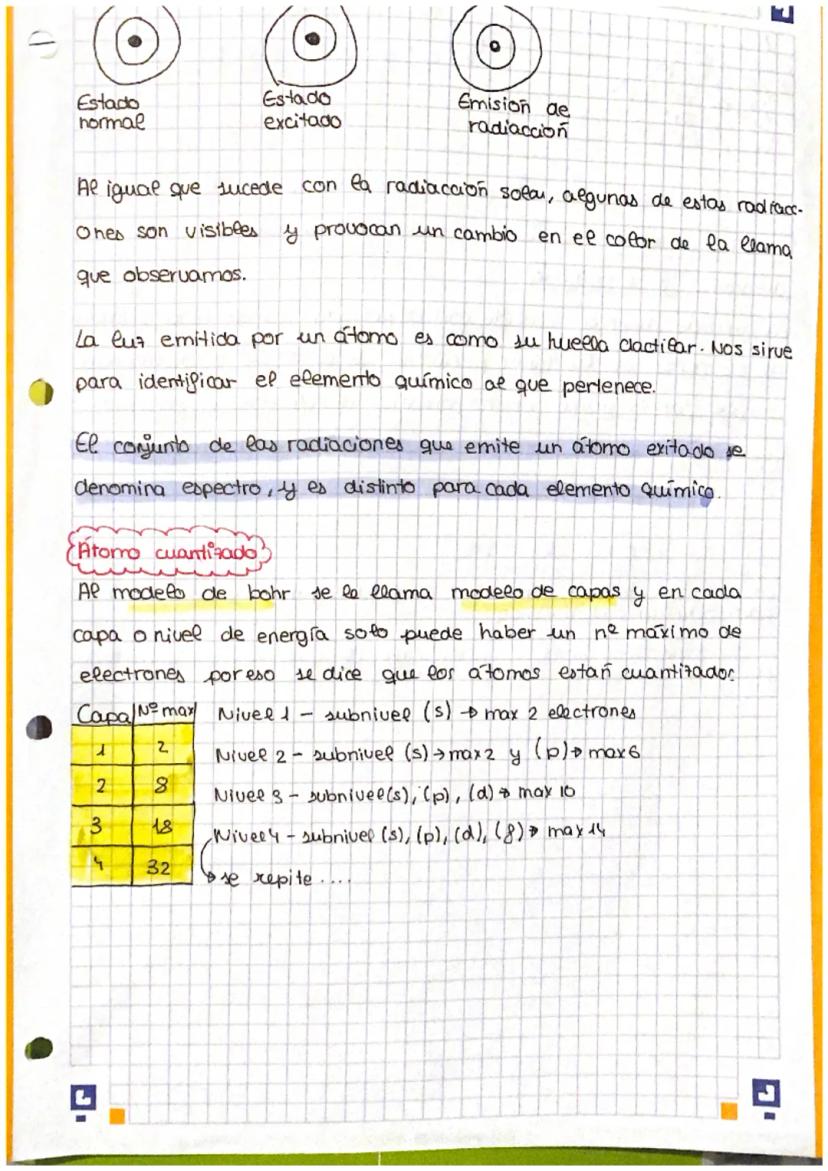 Estado normal
Estado excitado
Emisión de radiacción
Al igual que sucede con la radiacción solar, algunas de estas radiacc-
ones son visibles y provocan un cambio en el color de la llama
que observamos.
La luz emitida por un átomo es como su huella dactilar. Nos sirve
para identificar el elemento químico al que pertenece.
El conjunto de las radiaciones que emite un átomo exitado se
denomina espectro, y es distinto para cada elemento químico.
Átomo cuantizado
Al modelo de bohr se le llama modelo de capas y en cada
capa o nivel de energía solo puede haber un nº máximo de
electrones por eso se dice que los átomos están cuantizados.
Capa Nº max
1 2
2 8
3 18
4 32
Nivel 1 - subnivel (s) → max 2 electrones
Nivel 2 - subnivel (s) → max 2 y (p) → max 6
Nivel 3 - subnivel (s), (p), (d) → max 10
Nivel 4 - subnivel (s), (p), (d), (f) → max 14
↳ se repite ....